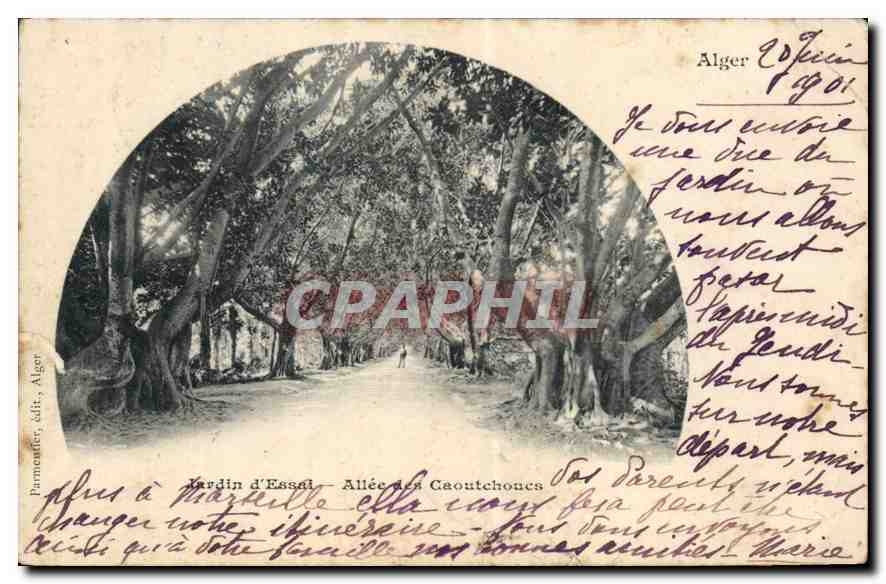 Alger 20 Juin
1901
Je vous envoie
une vue du
jardin où
nous allons
souvent
passer
l'après midi
du Jeudi -
Nous sommes
sur notre
départ, mais
vos parents n'étant
plus à Marseille cela nous fera peut être
changer notre itinéraire - Nous vous envoyons
ainsi qu'à votre famille nos bonnes amitiés - Marie
Jardin d'Essai - Allée des Caoutchoucs
Parmentier, édit., Alger
CPAPHIL